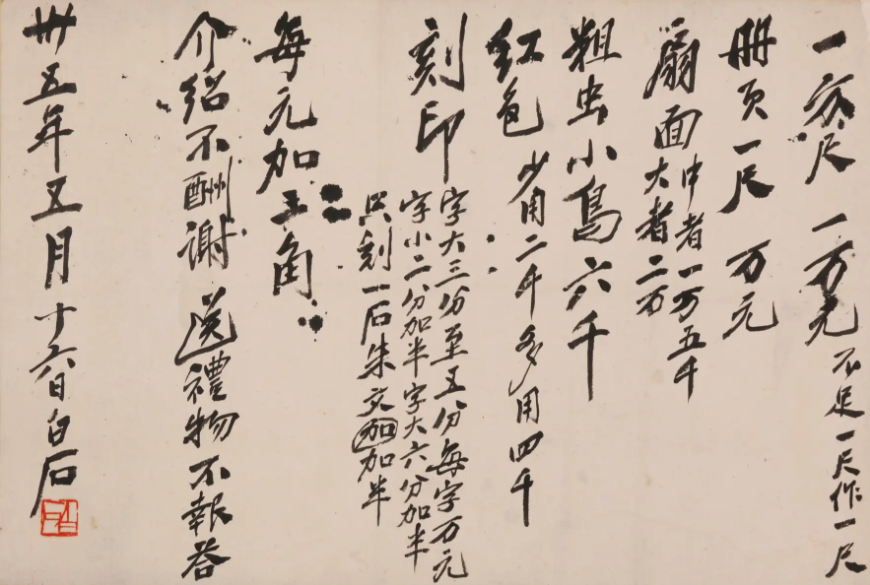 一方尺 一万元 不足一尺作一尺
册页一尺 万元
扇面 中者一万五千
大者二万
粗虫小鳥六千
红色 少用二千多用四千
刻印 字大三分至五分每字万元
字小二分加半字大六分加半
只刻一石朱文加加半
每元加三角
介绍不酬謝 送禮物不報答
卅五年五月十六日白石